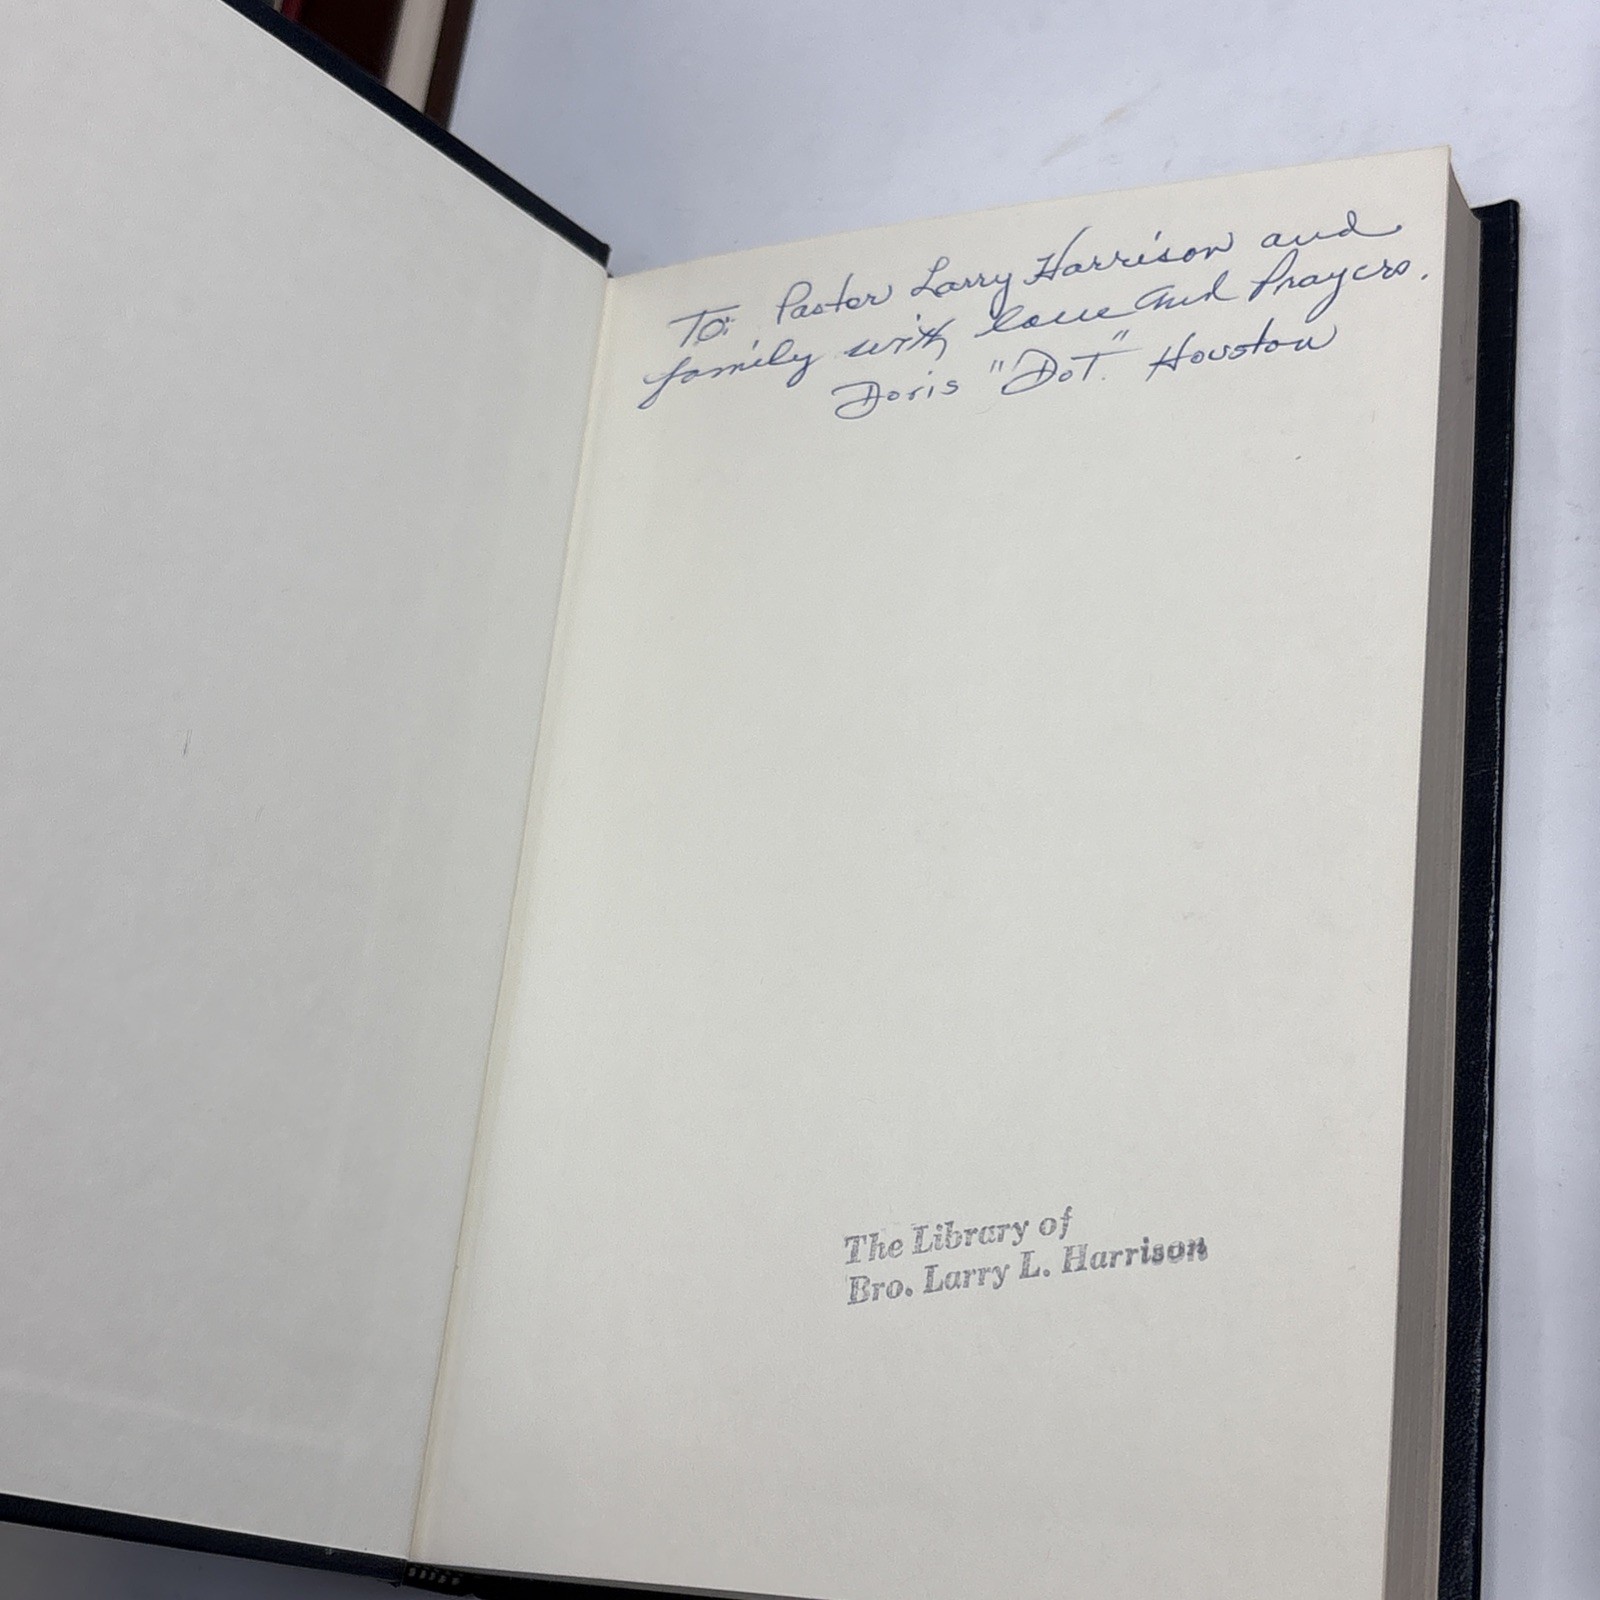 To: Pastor Larry Harrison and
family with love and Prayers.
Doris "Dot" Houston
The Library of
Bro. Larry L. Harrison